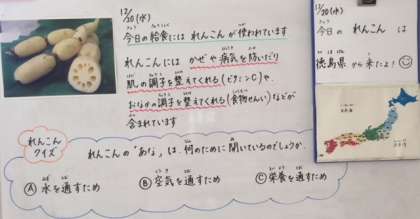 12/20(水)
今日の給食には れんこんが使われています
れんこんには かぜや病気を防いだり
肌の調子を整えてくれる(ビタミンC)や、
おなかの調子を整えてくれる(食物せんい)などが
含まれています
れんこん
クイズ
れんこんの"あな"は、何のために開いているのでしょうか。
Ⓐ 水を通すため Ⓑ 空気を通すため Ⓒ 栄養を通すため
12/20(水)
今日の れんこん は
徳島県 から来たよ!